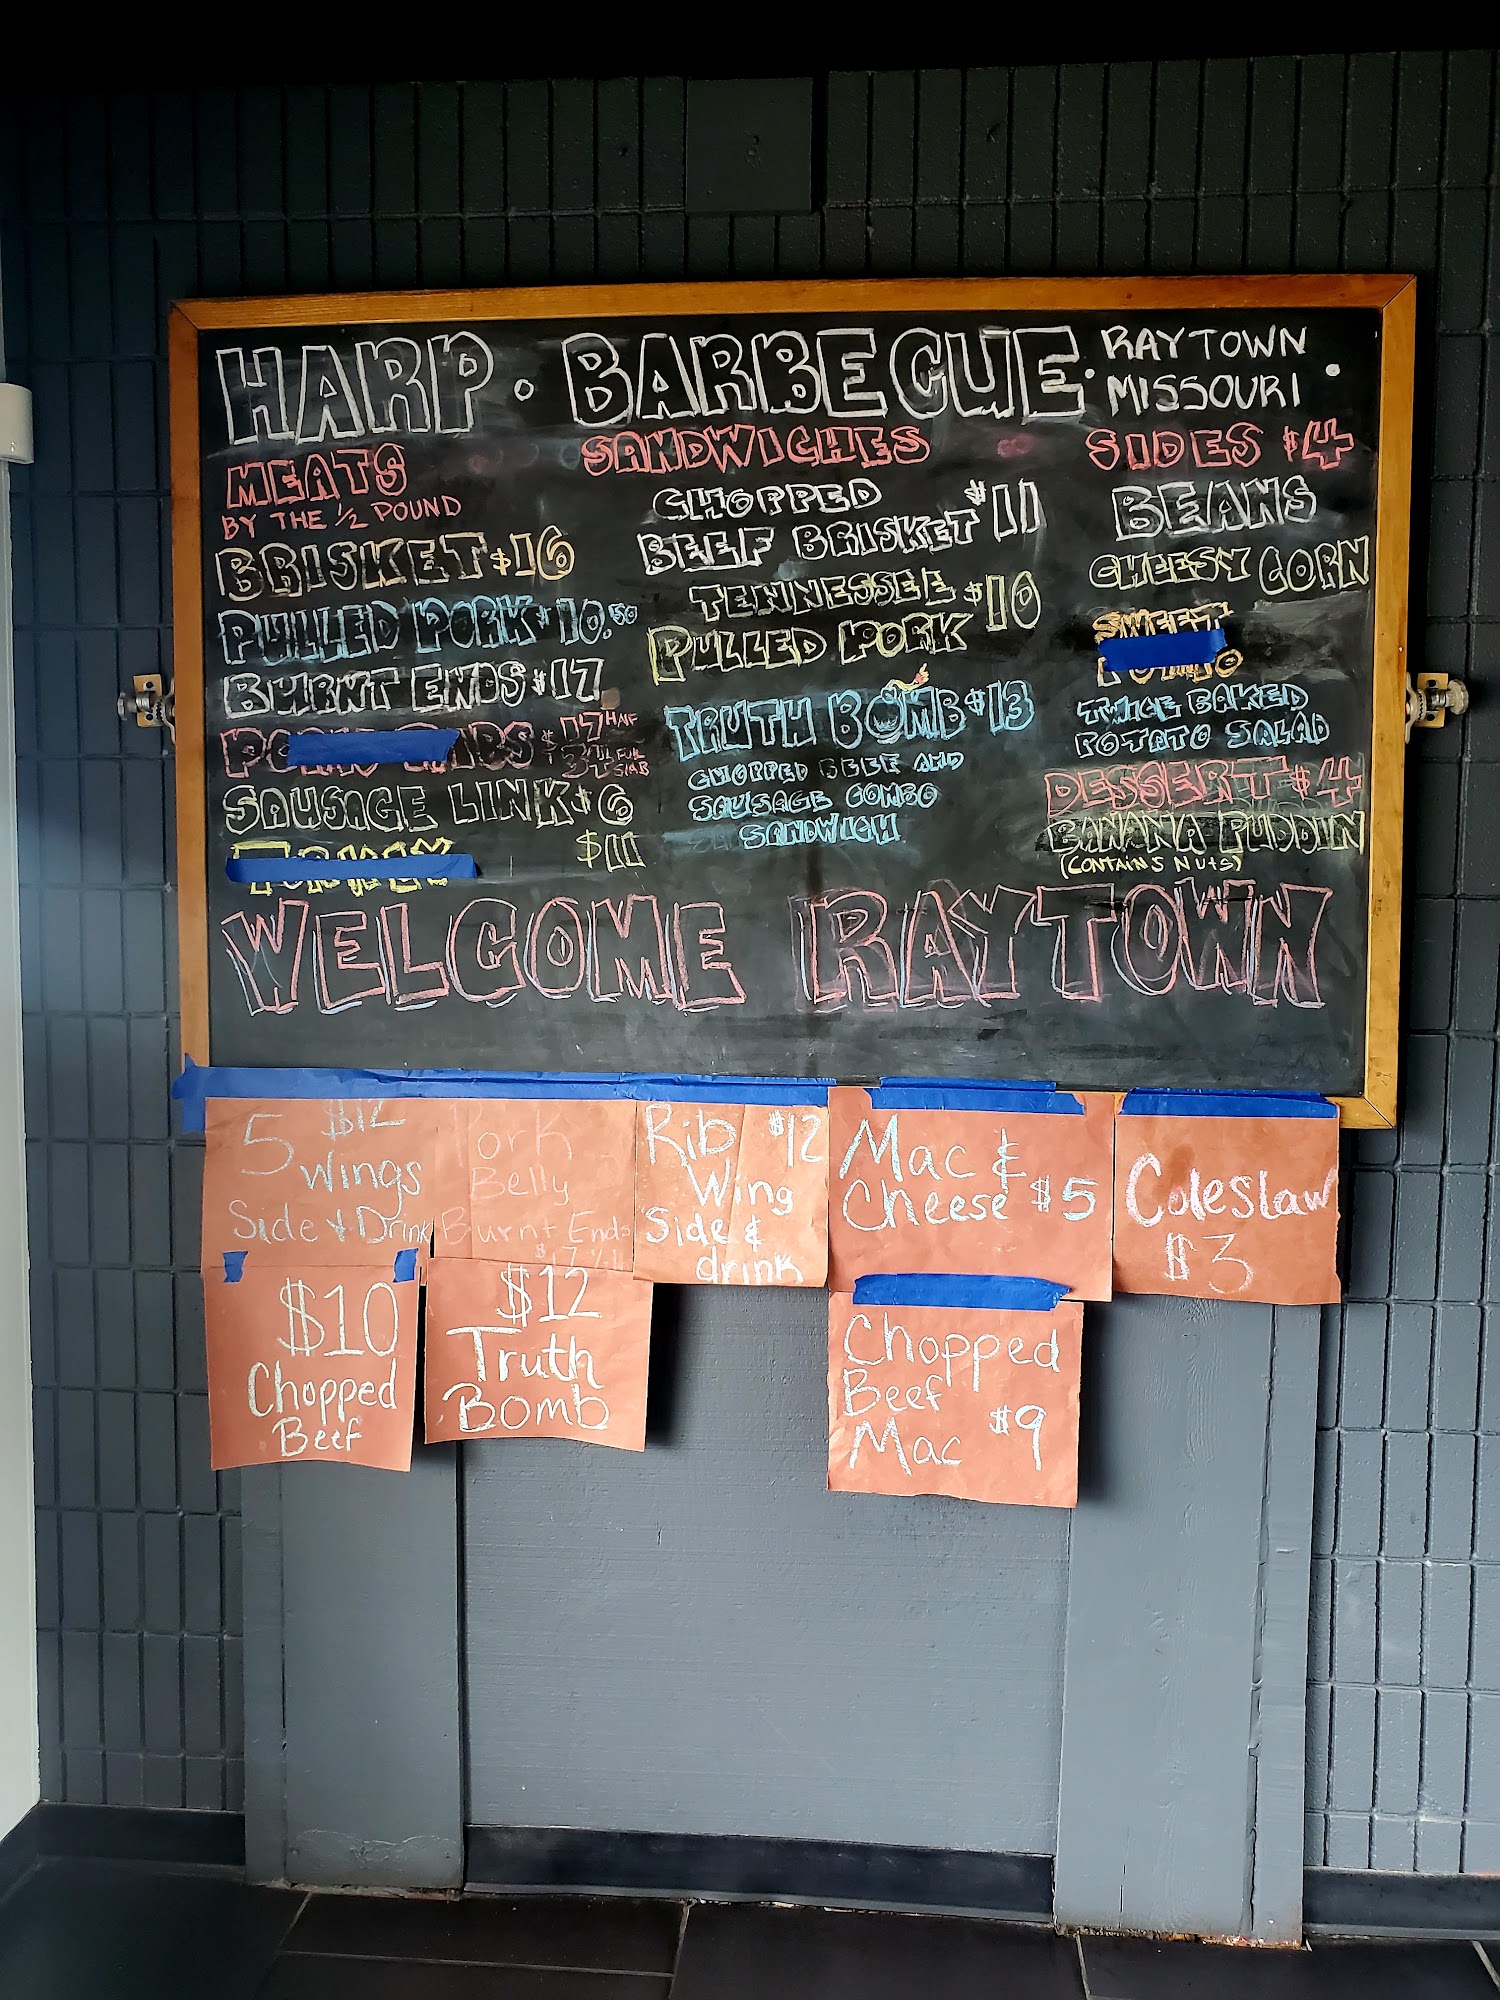 HARP • BARBECUE •
RAYTOWN
MISSOURI •
MEATS
BY THE 1/2 POUND
BRISKET $16
PULLED PORK $10.50
BURNT ENDS $17
$17 HALF
$34 FULL SLAB
SAUSAGE LINK $6
$11
SANDWICHES
CHOPPED
BEEF BRISKET $11
TENNESSEE
PULLED PORK $10
TRUTH BOMB $13
CHOPPED BEEF AND
SAUSAGE COMBO
SANDWICH
SIDES $4
BEANS
CHEESY CORN
SWEET
TWICE BAKED
POTATO SALAD
DESSERT $4
BANANA PUDDIN
(CONTAINS NUTS)
WELCOME RAYTOWN
$12
5 Wings
Side & Drink
Pork
Belly
Burnt Ends
Rib $12
Wing
Side &
drink
Mac &
Cheese $5
Coleslaw
$3
$10
Chopped
Beef
$12
Truth
Bomb
Chopped
Beef
Mac $9